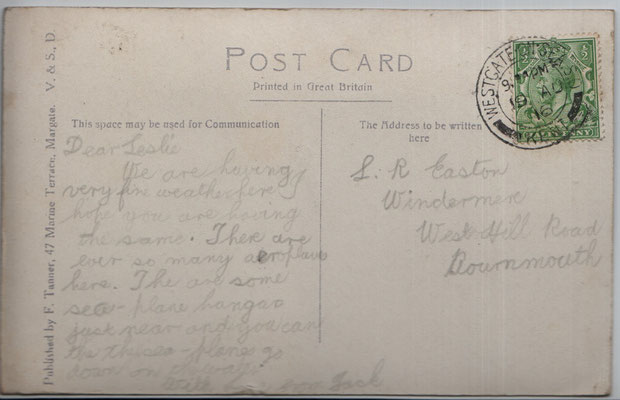 POST CARD
Printed in Great Britain
This space may be used for Communication
The Address to be written
here
Dear Leslie
We are having
very fine weather here I
hope you are having
the same. There are
ever so many aeroplans
here. The are some
sea-plane hangas
just near and you can
the sea-planes go
down on
With love from Jack
L. R Easton
Windermere
West Hill Road
Bournmouth
WESTGATE-ON-SEA
KENT
Published by F. Tanner, 47 Marine Terrace, Margate. V. & S., D.